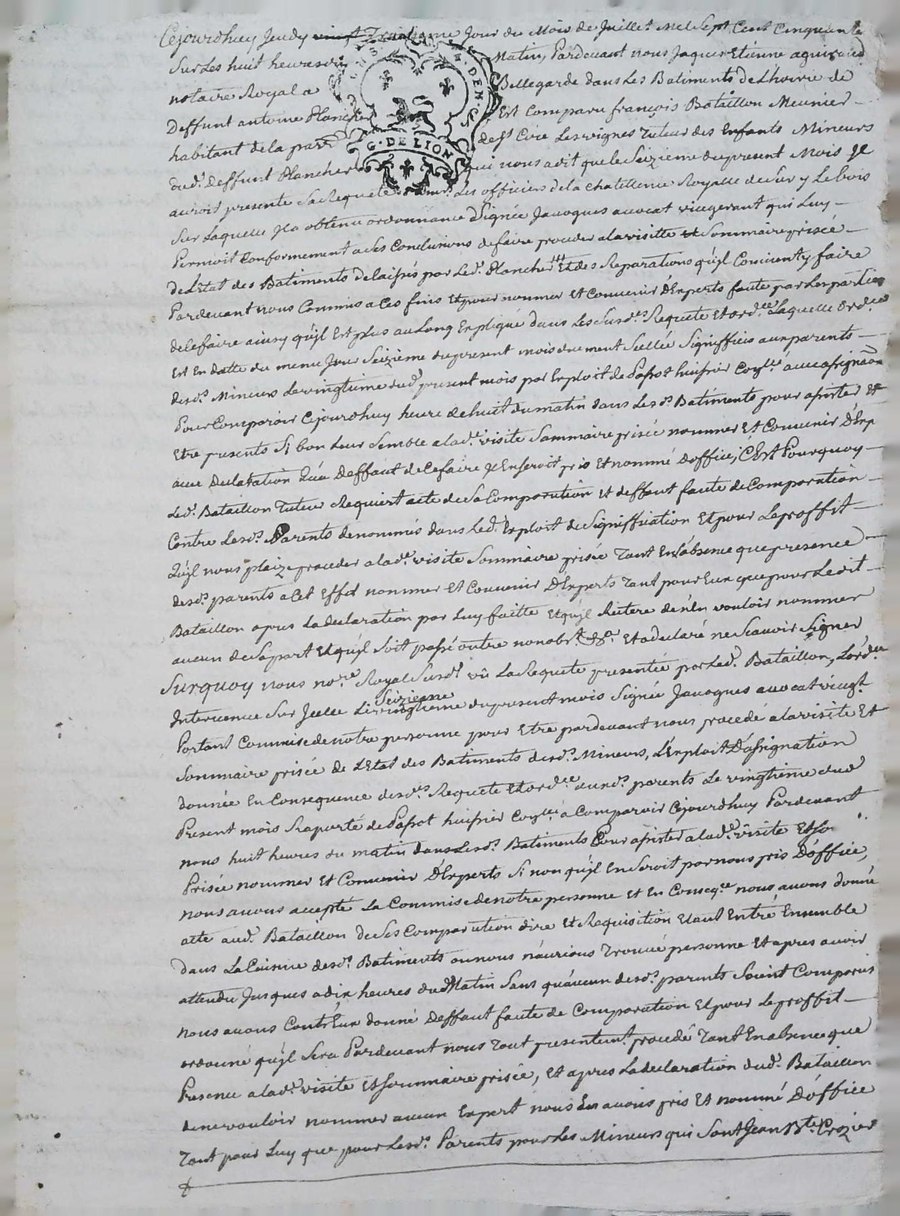 Cejourdhuy Jeudy vingt Trentieme Jour du Mois de Juillet Mil Sept Cent Cinquante
Sur Les huit heures du Matin, Pardevant nous Jaques Etienne
notaire Royal a Bellegarde dans Les Batiments de Lhoirie de
Deffunt antoine Plancher Est Comparu françois Bataillon Meunier
habitant de la par. de St Cire Les vignes Tuteur des Enfants Mineurs
dud. Deffunt Plancher qui nous a dit que le Seizieme du present Mois Il
auroit presenté Sa Requete Les officiers de la Chatellenie Royalle de Sur y Le bois
Sur Laquelle Il a obtenu ordonnance Signée Jacoques avocat vicegerant qui Luy
Permoit Conformement a Ses Conclusions de faire proceder a la visitte et Sommaire prisée
de Letat des Batiments delaissés par Led. Plancher Et des Reparations qu'jl Convient y faire
Pardevant nous Commis a Ces fins Et pour nommer Et Convenir D'Experts faute par Les parties
de le faire ainsy qu'jl Est plus au Long Expliqué dans Les Susd. Requete Et ord.ce Laquelle ord.ce
Est En datte du meme Jour Seizième du present mois duement Scellée Signiffiée aux parents
desd. Mineurs Le vingtieme dud. present mois par Exploit de Passot huissier Royal avec assignaon
Pour Comparoir Cejourdhuy heure de huit du matin dans Lesd. Batiments pour assister Et
Etre presents Si bon Leur Semble a lad. visite Sommaire prisée nommer Et Convenir D'Exp
avec Declaration qu'a Deffaut de Ce faire Il En Seroit pris Et nommé D'office, C'Est Pourquoy
Led. Bataillon Tuteur Requiert acte de Sa Comparution Et deffaut faute de Comparation
Contre Lesd. Parents denommés dans Led. Exploit de Signiffication Et pour Le proffit
Qu'jl nous plaize proceder a lad. visite Sommaire prisée Tant En Labsence que presence
desd. parents a Cet Effet nommer Et Convenir D'Experts Tant pour Eux que pour Ledit
Bataillon apres La declaration par Luy faitte Et qu'jl Reitere de n'En vouloir nommer
aucun de Sa part Et qu'jl Soit passé outre nonobst. Et a declaré ne Scavoir Signer
Surquoy nous no.re Royal Susd. vû La Requete presentée par Led. Bataillon, Lord.ce
Intervenue Sur Jcelle Le vingtieme Seizieme du present mois Signée Jacoques avocat vicegt
Portant Commise de notre personne pour Etre pardevant nous procedé a la visite Et
Sommaire prisée de L'Etat des Batiments desd. Mineurs, L'Exploit D'assignation
donnée En Consequence desd. Requete Et ord.ce auxd. parents Le vingtieme dud
Present mois Raporté de Passot huissier Royal a Comparoir Cejourdhuy Pardevant
nous huit heures du matin dans Lesd. Batiments Pour assister a lad. visite Et So
Prisée nommer Et Convenir D'Experts Si non qu'jl En Seroit par nous pris D'office,
nous avons accepté La Commise de notre personne Et En Conseq.ce nous avons donné
acte aud. Bataillon de Ses Comparution dire Et Requisition Etant Entré Ensemble
dans La Cuisine desd. Batiments ou nous n'aurions Trouvé personne Et apres avoir
attendu Jusques a dix heures dud. Matin Sans qu'aucun desd. parents Soient Comparus
nous avons Contr'Eux donné Deffaut faute de Comparation Et pour Le proffit
ordonné qu'jl Sera Pardevant nous Tout presentemt. procedé Tant En absence que
Presence a lad. visite Et Sommaire prisée, Et apres La declaration dud. Bataillon
de ne vouloir nommer aucun Expert nous En avons pris Et nommé D'office
Tant pour Luy que pour Lesd. Parents pour Les Mineurs qui Sont Jean Bte Crozier
G. DE LION